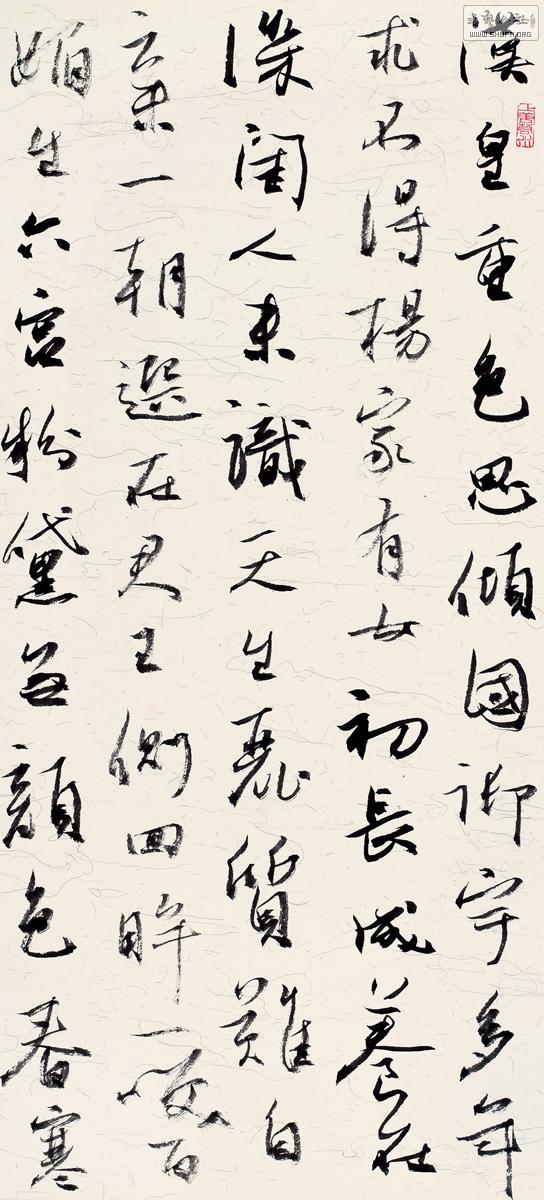 漢皇重色思傾國御宇多年
求不得楊家有女初長成養在
深閨人未識天生麗質難自
棄一朝選在君王側回眸一咲百
媚生六宮粉黛無顏色春寒
WWW.SHUFA.ORG